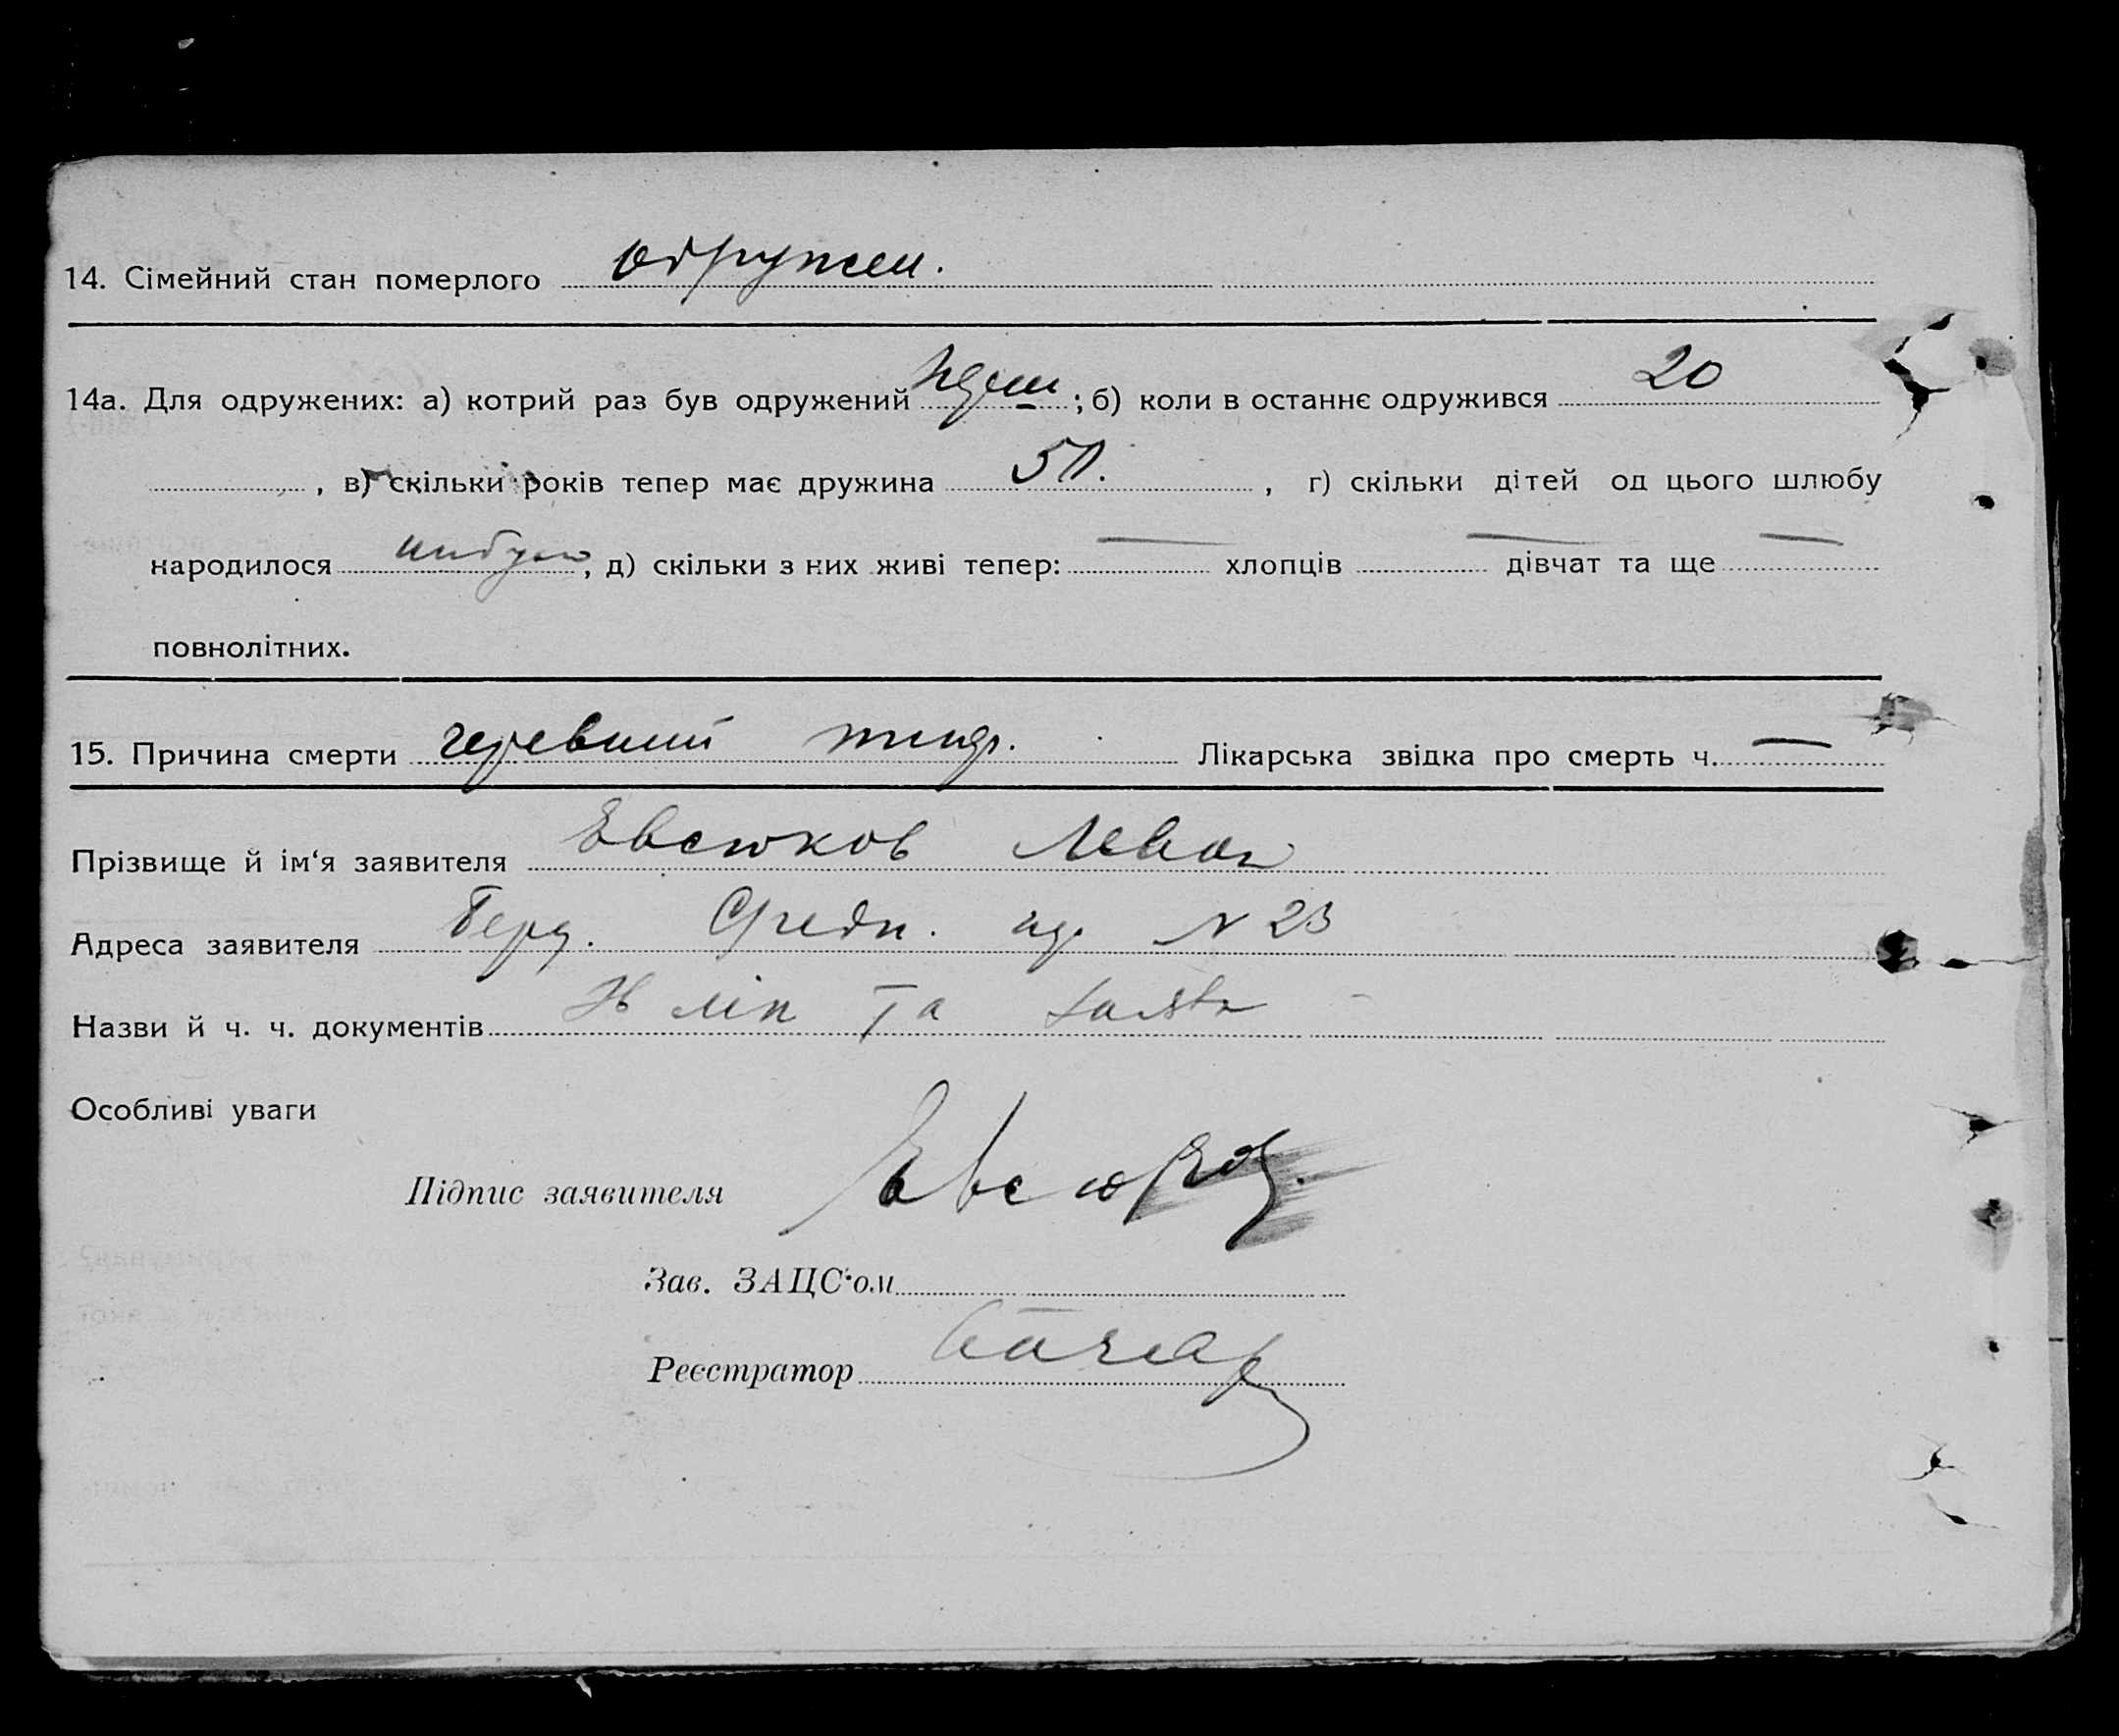 14. Сімейний стан померлого одружен.
14а. Для одружених: а) котрий раз був одружений перш; б) коли в останнє одружився 20
, в) скільки років тепер має дружина 50., г) скільки дітей од цього шлюбу
народилося небуло, д) скільки з них живі тепер: — хлопців — дівчат та ще —
повнолітних.
15. Причина смерти черевний тиф. Лікарська звідка про смерть ч. —
Прізвище й ім‘я заявителя Евсюков Леван
Адреса заявителя Берд. Средн. N 23
Назви й ч. ч. документів та
Особливі уваги
Підпис заявителя Евсюков
Зав. ЗАЦС‘ом
Реєстратор